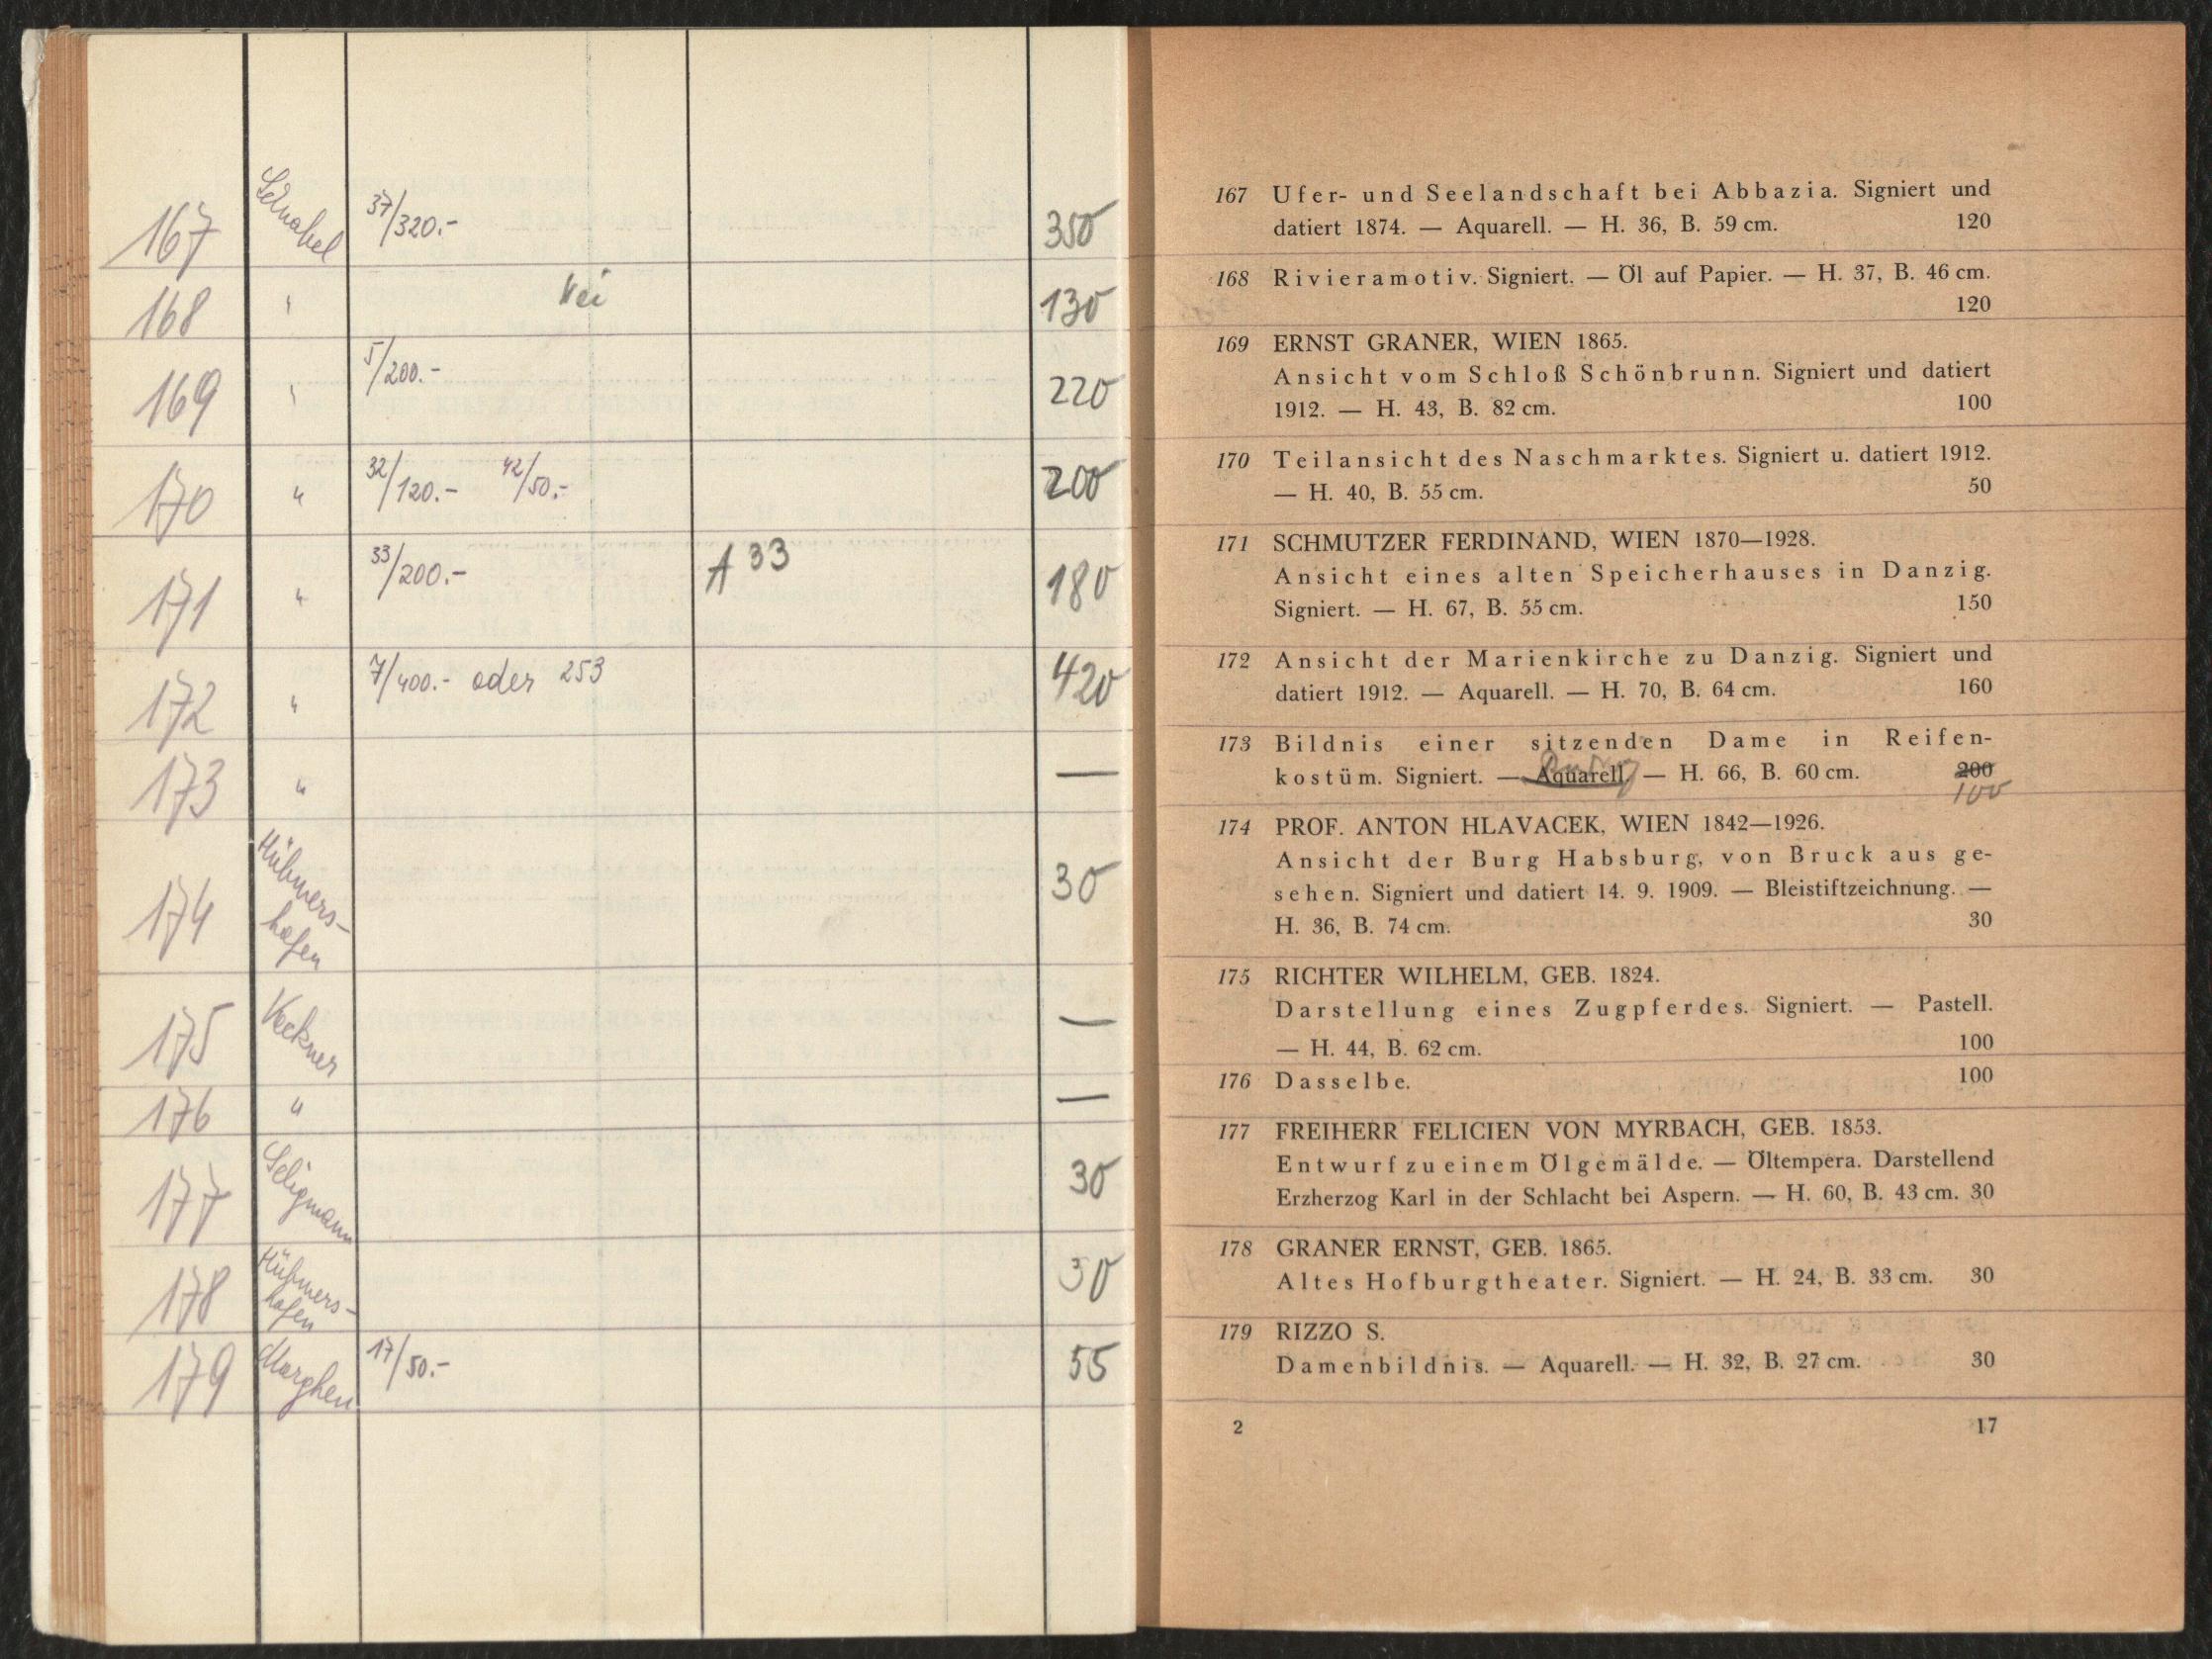 167 Schnabel 37/320.- 350
168 " 130
169 " 5/200.- 220
170 " 32/120.- 42/50.- 200
171 " 33/200.- A 33 180
172 " 7/400.- oder 253 420
173 " —
174 Hübners- 30
hofen
175 Keckner —
176 " —
177 Seligmann 30
178 Hübners- 30
hofen
179 17/50.- 55
167 Ufer- und Seelandschaft bei Abbazia. Signiert und
datiert 1874. — Aquarell. — H. 36, B. 59 cm. 120
168 Rivieramotiv. Signiert. — Öl auf Papier. — H. 37, B. 46 cm.
120
169 ERNST GRANER, WIEN 1865.
Ansicht vom Schloß Schönbrunn. Signiert und datiert
1912. — H. 43, B. 82 cm. 100
170 Teilansicht des Naschmarktes. Signiert u. datiert 1912.
— H. 40, B. 55 cm. 50
171 SCHMUTZER FERDINAND, WIEN 1870—1928.
Ansicht eines alten Speicherhauses in Danzig.
Signiert. — H. 67, B. 55 cm. 150
172 Ansicht der Marienkirche zu Danzig. Signiert und
datiert 1912. — Aquarell. — H. 70, B. 64 cm. 160
173 Bildnis einer sitzenden Dame in Reifen-
kostüm. Signiert. — Aquarell. — H. 66, B. 60 cm. 200
100
174 PROF. ANTON HLAVACEK, WIEN 1842—1926.
Ansicht der Burg Habsburg, von Bruck aus ge-
sehen. Signiert und datiert 14. 9. 1909. — Bleistiftzeichnung. —
H. 36, B. 74 cm. 30
175 RICHTER WILHELM, GEB. 1824.
Darstellung eines Zugpferdes. Signiert. — Pastell.
— H. 44, B. 62 cm. 100
176 Dasselbe. 100
177 FREIHERR FELICIEN VON MYRBACH, GEB. 1853.
Entwurf zu einem Ölgemälde. — Öltempera. Darstellend
Erzherzog Karl in der Schlacht bei Aspern. — H. 60, B. 43 cm. 30
178 GRANER ERNST, GEB. 1865.
Altes Hofburgtheater. Signiert. — H. 24, B. 33 cm. 30
179 RIZZO S.
Damenbildnis. — Aquarell. — H. 32, B. 27 cm. 30
2 17